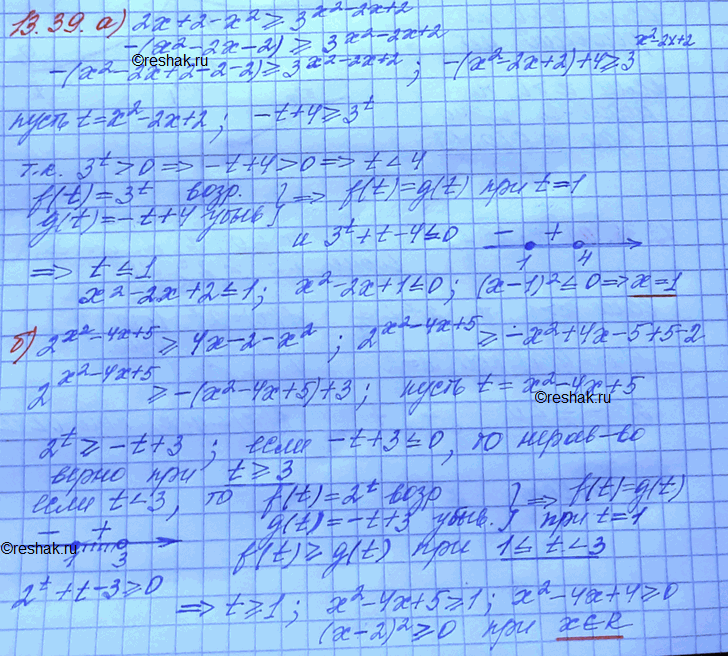 13.39. а) 2x+2-x² ≥ 3^(x²-2x+2)
-(x²-2x-2) ≥ 3^(x²-2x+2)
©reshak.ru
-(x²-2x+2-2-2) ≥ 3^(x²-2x+2) ; -(x²-2x+2)+4 ≥ 3^(x²-2x+2)
пусть t=x²-2x+2 ; -t+4 ≥ 3^t
т.к. 3^t > 0 ⇒ -t+4 > 0 ⇒ t < 4
f(t) = 3^t возр.
g(t) = -t+4 убыв } ⇒ f(t)=g(t) при t=1
и 3^t+t-4 ≤ 0 - + 1 4
⇒ t ≤ 1
x²-2x+2 ≤ 1 ; x²-2x+1 ≤ 0 ; (x-1)² ≤ 0 ⇒ x=1
б) 2^(x²-4x+5) ≥ 4x-2-x² ; 2^(x²-4x+5) ≥ -x²+4x-5+5-2
2^(x²-4x+5) ≥ -(x²-4x+5)+3 ; пусть t = x²-4x+5
©reshak.ru
2^t ≥ -t+3 ; если -t+3 ≤ 0, то нерав-во
верно при t ≥ 3
если t < 3, то f(t) = 2^t возр
g(t) = -t+3 убыв. } ⇒ f(t)=g(t) при t=1
- + 1 3
©reshak.ru
f(t) ≥ g(t) при 1 ≤ t < 3
2^t+t-3 ≥ 0
⇒ t ≥ 1 ; x²-4x+5 ≥ 1 ; x²-4x+4 ≥ 0
(x-2)² ≥ 0 при x∈R